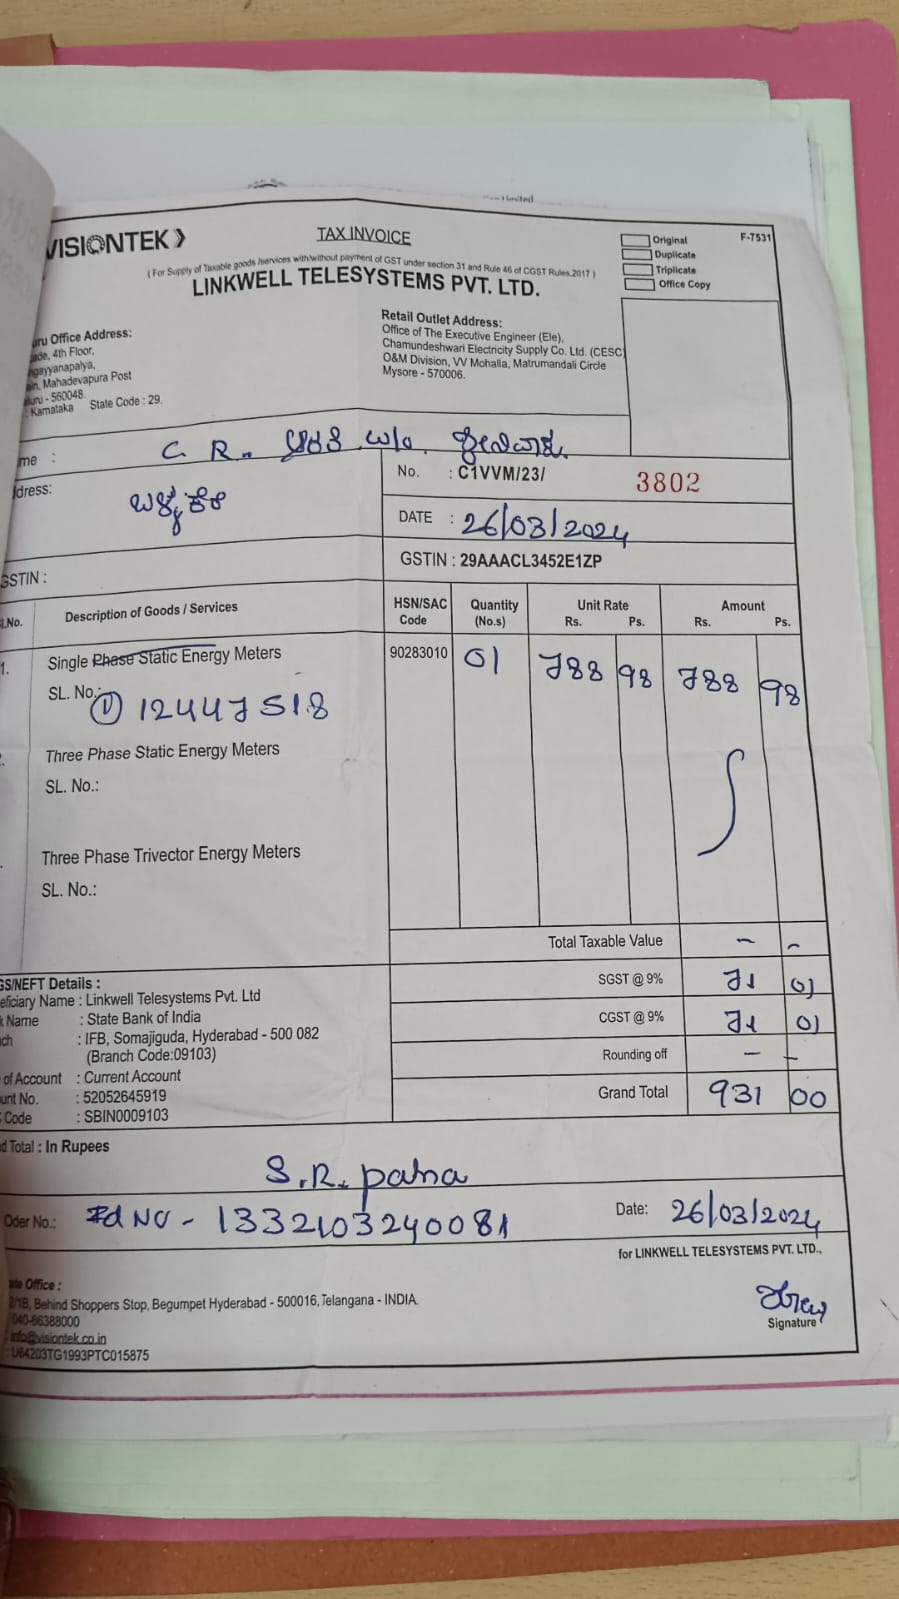 VISIONTEK
TAX INVOICE
Original
Duplicate
Triplicate
Office Copy
F-7531
( For Supply of Taxable goods /services with/without payment of GST under section 31 and Rule 46 of CGST Rules.2017 )
LINKWELL TELESYSTEMS PVT. LTD.
Office Address:
4th Floor,
Mahadevapura Post
- 560048.
: Karnataka State Code : 29.
Retail Outlet Address:
Office of The Executive Engineer (Ele),
Chamundeshwari Electricity Supply Co. Ltd. (CESC
O&M Division, VV Mohalla, Matrumandali Circle
Mysore - 570006.
C. R. W/o.
No. : C1VVM/23/ 3802
DATE : 26/03/2024
GSTIN :
GSTIN : 29AAACL3452E1ZP
Description of Goods / Services
HSN/SAC Code
Quantity (No.s)
Unit Rate Rs. Ps.
Amount Rs. Ps.
1. Single Phase Static Energy Meters 90283010 01 788 98 788 98
SL. No.: ① 12447518
Three Phase Static Energy Meters
SL. No.:
Three Phase Trivector Energy Meters
SL. No.:
Total Taxable Value - -
SGST @ 9% 71 01
CGST @ 9% 71 01
Rounding off - -
Grand Total 931 00
GS/NEFT Details :
Name : Linkwell Telesystems Pvt. Ltd
Name : State Bank of India
: IFB, Somajiguda, Hyderabad - 500 082
(Branch Code:09103)
of Account : Current Account
No. : 52052645919
Code : SBIN0009103
Total : In Rupees
S.R.
Oder No.: Id No - 1332103240081
Date: 26/03/2024
for LINKWELL TELESYSTEMS PVT. LTD.,
Office :
Behind Shoppers Stop, Begumpet Hyderabad - 500016, Telangana - INDIA.
040-66388000
info@visiontek.co.in
: U64203TG1993PTC015875
Signature